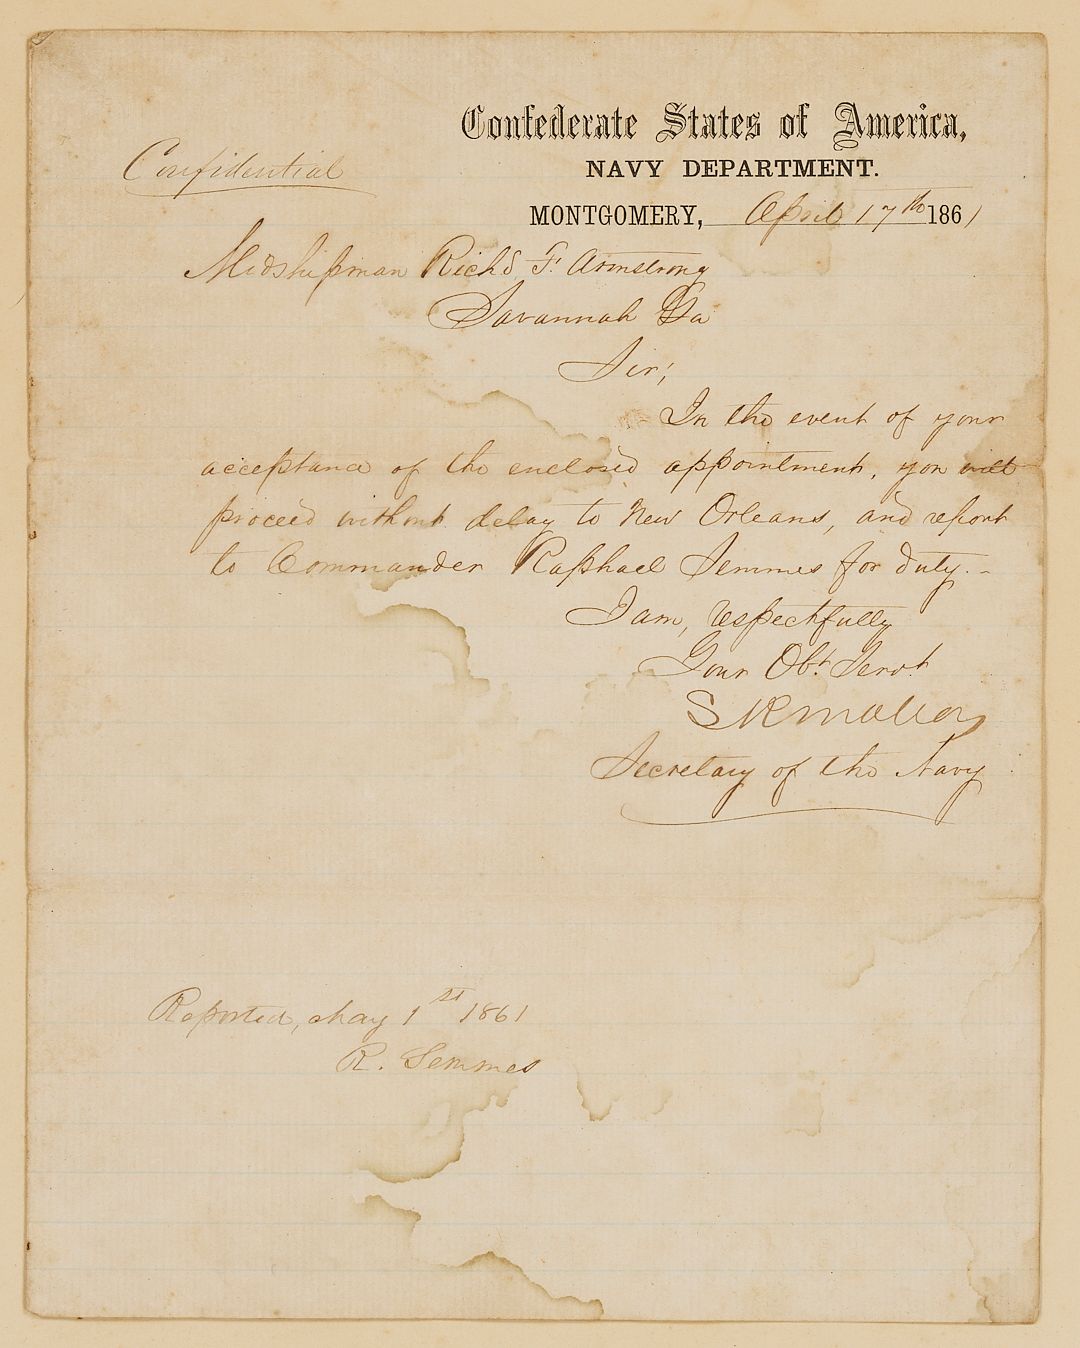 Confederate States of America,
NAVY DEPARTMENT.
Confidential
MONTGOMERY, April 17th 1861
Midshipman Richd. F. Armstrong
Savannah Ga
Sir;
In the event of your
acceptance of the enclosed appointment, you will
proceed without delay to New Orleans, and report
to Commander Raphael Semmes for duty.-
I am, respectfully
Your Obt. Servt.
S R Mallory
Secretary of the Navy
Reported, May 1st 1861
R. Semmes